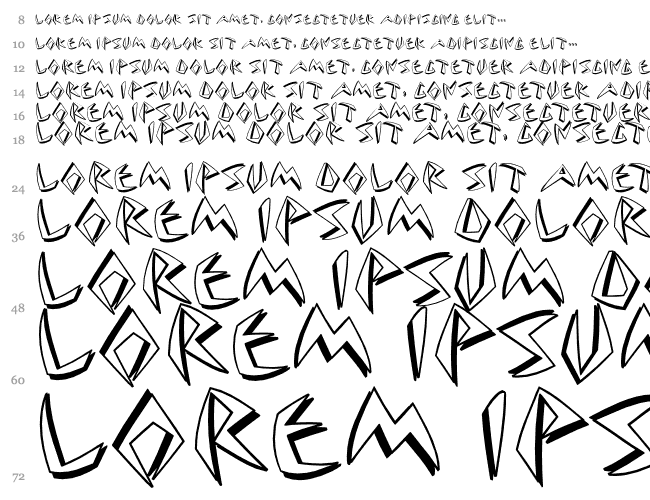 8 LOREM IPSUM DOLOR SIT AMET, CONSECTETUER ADIPISCING ELIT...
10 LOREM IPSUM DOLOR SIT AMET, CONSECTETUER ADIPISCING ELIT...
12 LOREM IPSUM DOLOR SIT AMET, CONSECTETUER ADIPISCING E
14 LOREM IPSUM DOLOR SIT AMET, CONSECTETUER ADIP
16 LOREM IPSUM DOLOR SIT AMET, CONSECTETUER
18 LOREM IPSUM DOLOR SIT AMET, CONSECT
24 LOREM IPSUM DOLOR SIT AMET
36 LOREM IPSUM DOLOR
48 LOREM IPSUM D
60 LOREM IPSUM
72 LOREM IPS